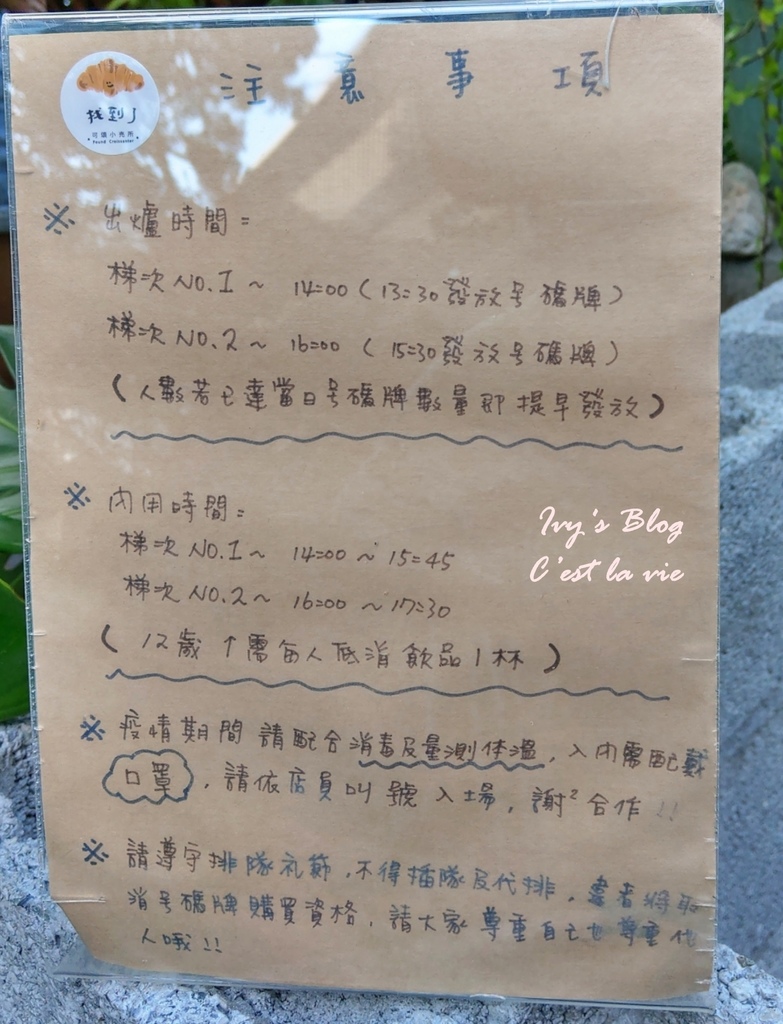 找到了
可頌小売所
Found Croissanter
注意事項
※ 出爐時間:
梯次NO.1~ 14:00(13:30發放号碼牌)
梯次NO.2~ 16:00 (15:30發放号碼牌)
(人數若已達當日号碼牌數量即提早發放)
※ 內用時間:
梯次NO.1~ 14:00~15:45
梯次NO.2~ 16:00~17:30
(12歲↑需每人低消飲品1杯)
Ivy's Blog
C'est la vie
※ 疫情期間請配合消毒及量測体溫,入內需配戴
口罩,請依店員叫號入場,謝²合作!!
※ 請遵守排隊礼節,不得插隊及代排,違者將取
消号碼牌購買資格,請大家尊重自己也尊重他
人哦!!